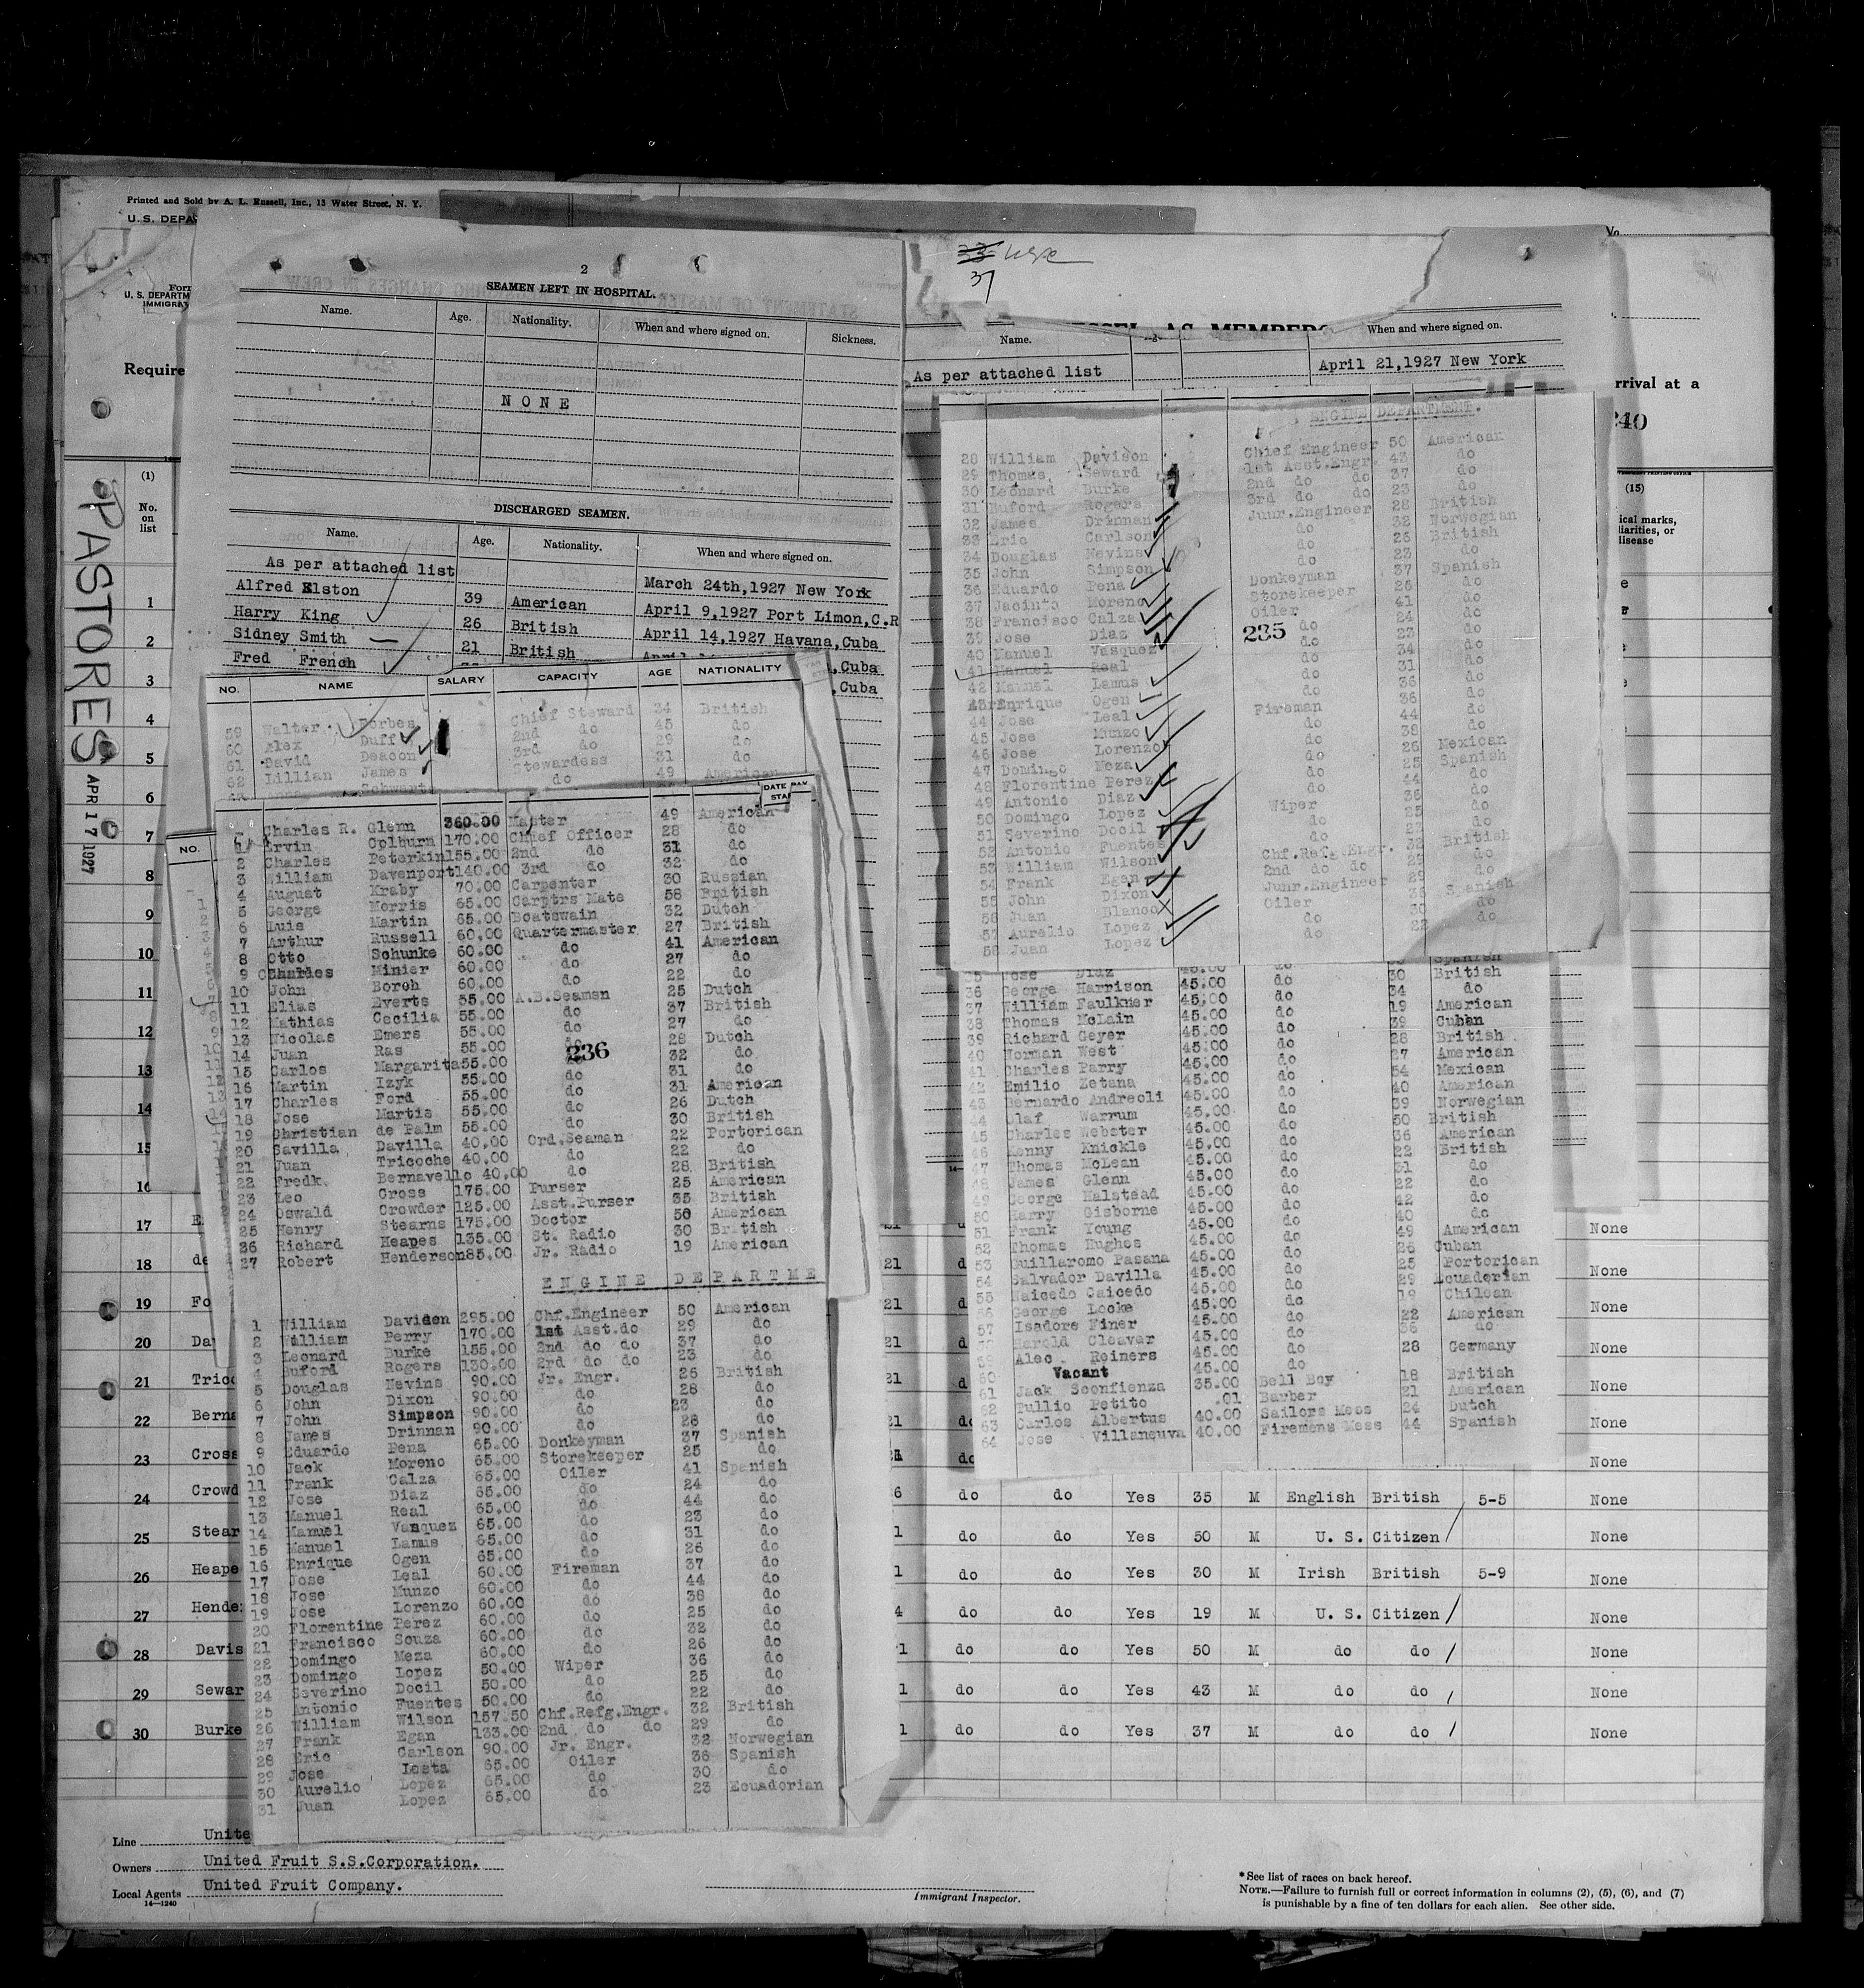 Printed and Sold by A. L. Russell, Inc., 13 Water Street, N. Y.
U. S. DEPA
Form
U. S. DEPARTM
IMMIGRAT
Require
PASTORES
APR 17 1927
(1)
No.
on
list
1
2
3
4
5
6
7
8
9
10
11
12
13
14
15
16
17 E
18 de
19 Fo
20 Da
21 Tric
22 Berna
23 Cross
24 Crowd
25 Stear
26 Heape
27 Hende
28 Davis
29 Sewar
30 Burke
2
SEAMEN LEFT IN HOSPITAL.
Name. Age. Nationality. When and where signed on. Sickness.
NONE
DISCHARGED SEAMEN.
Name. Age. Nationality. When and where signed on.
As per attached list March 24th,1927 New York
Alfred Elston 39 American April 9,1927 Port Limon,C.R
Harry King 26 British April 14,1927 Havana,Cuba
Sidney Smith 21 British
Fred French ,Cuba
,Cuba
NO. NAME SALARY CAPACITY AGE NATIONALITY
59 Walter Forbes Chief Steward 34 British
60 Alex Duff 2nd do 45 do
61 David Deacon 3rd do 29 do
62 Lillian James Stewardess 31 do
do 49 American
NO.
Charles R. Glenn 360.00 Master 49 American
1 Ervin Colburn 170.00 Chief Officer 28 do
2 Charles Peterkin 155.00 2nd do 31 do
3 William Davenport 140.00 3rd do 32 do
4 August Kraby 70.00 Carpenter 30 Russian
5 George Morris 65.00 Carptrs Mate 58 British
6 Luis Martin 65.00 Boatswain 32 Dutch
7 Arthur Russell 60.00 Quartermaster 27 British
8 Otto Schunke 60.00 do 41 American
9 Charles Minier 60.00 do 27 do
10 John Borch 60.00 do 22 do
11 Elias Everts 55.00 A.B.Seaman 25 Dutch
12 Mathias Cecilia 55.00 do 37 British
13 Nicolas Emers 55.00 do 27 do
14 Juan Ras 55.00 28 Dutch
236
15 Carlos Margarita 55.00 do 32 do
16 Martin Izyk 55.00 do 31 do
17 Charles Ford 55.00 do 31 American
18 Jose Martis 55.00 do 26 Dutch
19 Christian de Palm 55.00 do 30 British
20 Savilla Davilla 40.00 Ord.Seaman 22 Portorican
21 Juan Tricoche 40.00 do 22 do
22 Fredk. Bernavello 40.00 do 28 British
23 Leo Cross 175.00 Purser 25 American
24 Oswald Crowder 125.00 Asst.Purser 35 British
25 Henry Stearns 175.00 Doctor 50 American
26 Richard Heapes 135.00 St. Radio 30 British
27 Robert Henderson 85.00 Jr. Radio 19 American
ENGINE DEPARTME
1 William Davidson 295.00 Chf.Engineer 50 American
2 William Perry 170.00 1st Asst.do 29 do
3 Leonard Burke 155.00 2nd do do 37 do
4 Buford Rogers 130.00 2rd do do 23 do
5 Douglas Nevins 90.00 Jr. Engr. 26 British
6 John Dixon 90.00 do 28 do
7 John Simpson 90.00 do 23 do
8 James Drinnan 90.00 do 28 do
9 Eduardo Pena 65.00 Donkeyman 37 Spanish
10 Jack Moreno 65.00 Storekeeper 25 do
11 Frank Calza 65.00 Oiler 41 Spanish
12 Jose Diaz 65.00 do 24 do
13 Manuel Real 65.00 do 44 do
14 Manuel Vasquez 65.00 do 23 do
15 Manuel Lamis 65.00 do 31 do
16 Enrique Ogen 65.00 do 26 do
17 Jose Leal 60.00 Fireman 37 do
18 Jose Munzo 60.00 do 44 do
19 Jose Lorenzo 60.00 do 38 do
20 Florentine Perez 60.00 do 25 do
21 Francisco Souza 60.00 do 32 do
22 Domingo Meza 60.00 do 26 do
23 Domingo Lopez 50.00 Wiper 36 do
24 Severino Docil 50.00 do 25 do
25 Antonio Fuentes 50.00 do 22 do
26 William Wilson 157.50 Chf.Refg.Engr. 32 British
27 Frank Egan 133.00 2nd do do 29 do
28 Eric Carlson 90.00 Jr. Engr. 32 Norwegian
29 Jose Losta 65.00 Oiler 36 Spanish
30 Aurelio Lopez 65.00 do 30 do
31 Juan Lopez 65.00 do 23 Ecuadorian
Line Unite
Owners United Fruit S.S.Corporation.
Local Agents United Fruit Company.
14—1240
33
37
Name. When and where signed on.
As per attached list April 21,1927 New York
ENGINE DEPARTMENT.
28 William Davison Chief Engineer 50 American
29 Thomas Seward 1st Asst.Engr. 43 do
30 Leonard Burke 2nd do do 37 do
31 Buford Rogers 3rd do do 23 do
32 James Drinnan Junr.Engineer 28 British
33 Eric Carlson do 32 Norwegian
34 Douglas Nevins do 26 British
35 John Simpson do 23 do
36 Eduardo Pena Donkeyman 37 Spanish
37 Jacinto Moreno Storekeeper 25 do
38 Francisco Calza Oiler 41 do
39 Jose Diaz do 24 do
235
40 Manuel Vasquez do 23 do
41 Manuel Real do 34 do
42 Manuel Lamus do 31 do
43 Enrique Ogen do 36 do
44 Jose Leal Fireman 36 do
45 Jose Munzo do 44 do
46 Jose Lorenzo do 38 do
47 Domingo Meza do 26 Mexican
48 Florentine Perez do 25 Spanish
49 Antonio Diaz do 44 do
50 Domingo Lopez Wiper 36 do
51 Severino Docil do 25 do
52 Antonio Fuentes do 22 do
53 William Wilson Chf.Refg.Engr. 32 British
54 Frank Egan 2nd do do 29 do
55 John Dixon Junr.Engineer 29 do
56 Juan Blanco Oiler 36 Spanish
57 Aurelio Lopez do 30 do
58 Juan Lopez do 22 do
35 Jose Diaz 45.00 do Spanish
36 George Harrison 45.00 do 30 British
37 William Faulkner 45.00 do 34 do
38 Thomas McLain 45.00 do 19 American
39 Richard Geyer 45.00 do 39 Cuban
40 Norman West 45.00 do 28 British
41 Charles Parry 45.00 do 27 American
42 Emilio Zetana 45.00 do 54 Mexican
43 Bernardo Andreoli 45.00 do 40 American
44 Olaf Warrum 45.00 do 39 Norwegian
45 Charles Webster 45.00 do 50 British
46 Kenny Knickle 45.00 do 36 American
47 Thomas McLean 45.00 do 22 British
48 James Glenn 45.00 do 31 do
49 George Halstead 45.00 do 22 do
50 Harry Gisborne 45.00 do 42 do
51 Frank Young 45.00 do 40 do
52 Thomas Hughes 45.00 do 49 American
53 Guillaromo Pasana 45.00 do 26 Cuban
54 Salvador Davilla 45.00 do 25 Portorican
55 Naicedo Caicedo 45.00 do 29 Ecuadorian
56 George Locke 45.00 do 19 Chilean
57 Isadore Finer 45.00 do 22 American
Harold Cleaver 45.00 do 36 do
59 Alec Reiners 45.00 do 28 Germany
60 Vacant 45.00 do
61 Jack Sconfienza 35.00 Bell Boy 18 British
62 Tullio Petito .01 Barber 21 American
63 Carlos Albertus 40.00 Sailors Mess 24 Dutch
64 Jose Villanueva 40.00 Firemens Mess 44 Spanish
rrival at a
(15)
ical marks,
liarities, or
disease
None
21 d None
21 d None
21 d None
21 d None
21 do None
do None
6 do do Yes 35 M English British 5-5 None
1 do do Yes 50 M U. S. Citizen None
1 do do Yes 30 M Irish British 5-9 None
4 do do Yes 19 M U. S. Citizen None
1 do do Yes 50 M do do None
1 do do Yes 43 M do do None
1 do do Yes 37 M do do None
Immigrant Inspector.
*See list of races on back hereof.
NOTE.—Failure to furnish full or correct information in columns (2), (5), (6), and (7)
is punishable by a fine of ten dollars for each alien. See other side.